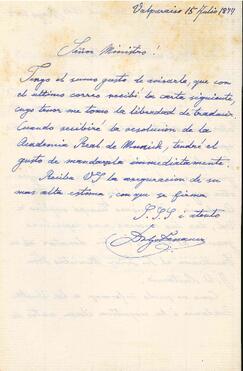 Valparaiso 15 Julio 1877
Señor Ministro!
Tengo el sumo gusto de avisarle, que con
el ultimo correo recibí la carta siguiente,
cuyo tenor me tomo la libertad de traducir.
Cuando recibiré la resolucion de la
Academia Real de Munich, tendré el
gusto de mandarsela immediatamente.
Reciba VS la aseguracion de su
mas alta estima, con que se firma
S.S.S i atento